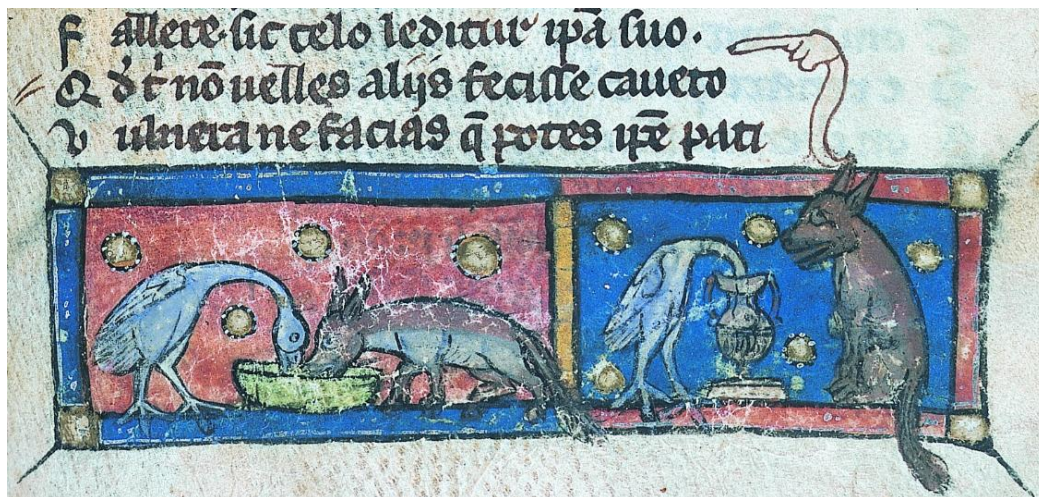 F allere. sic telo leditur ip̄a suo.
Q d' t' nō uelles alijs fecisse caueto
V ulnera ne facias q̄ potes ip̄e pati